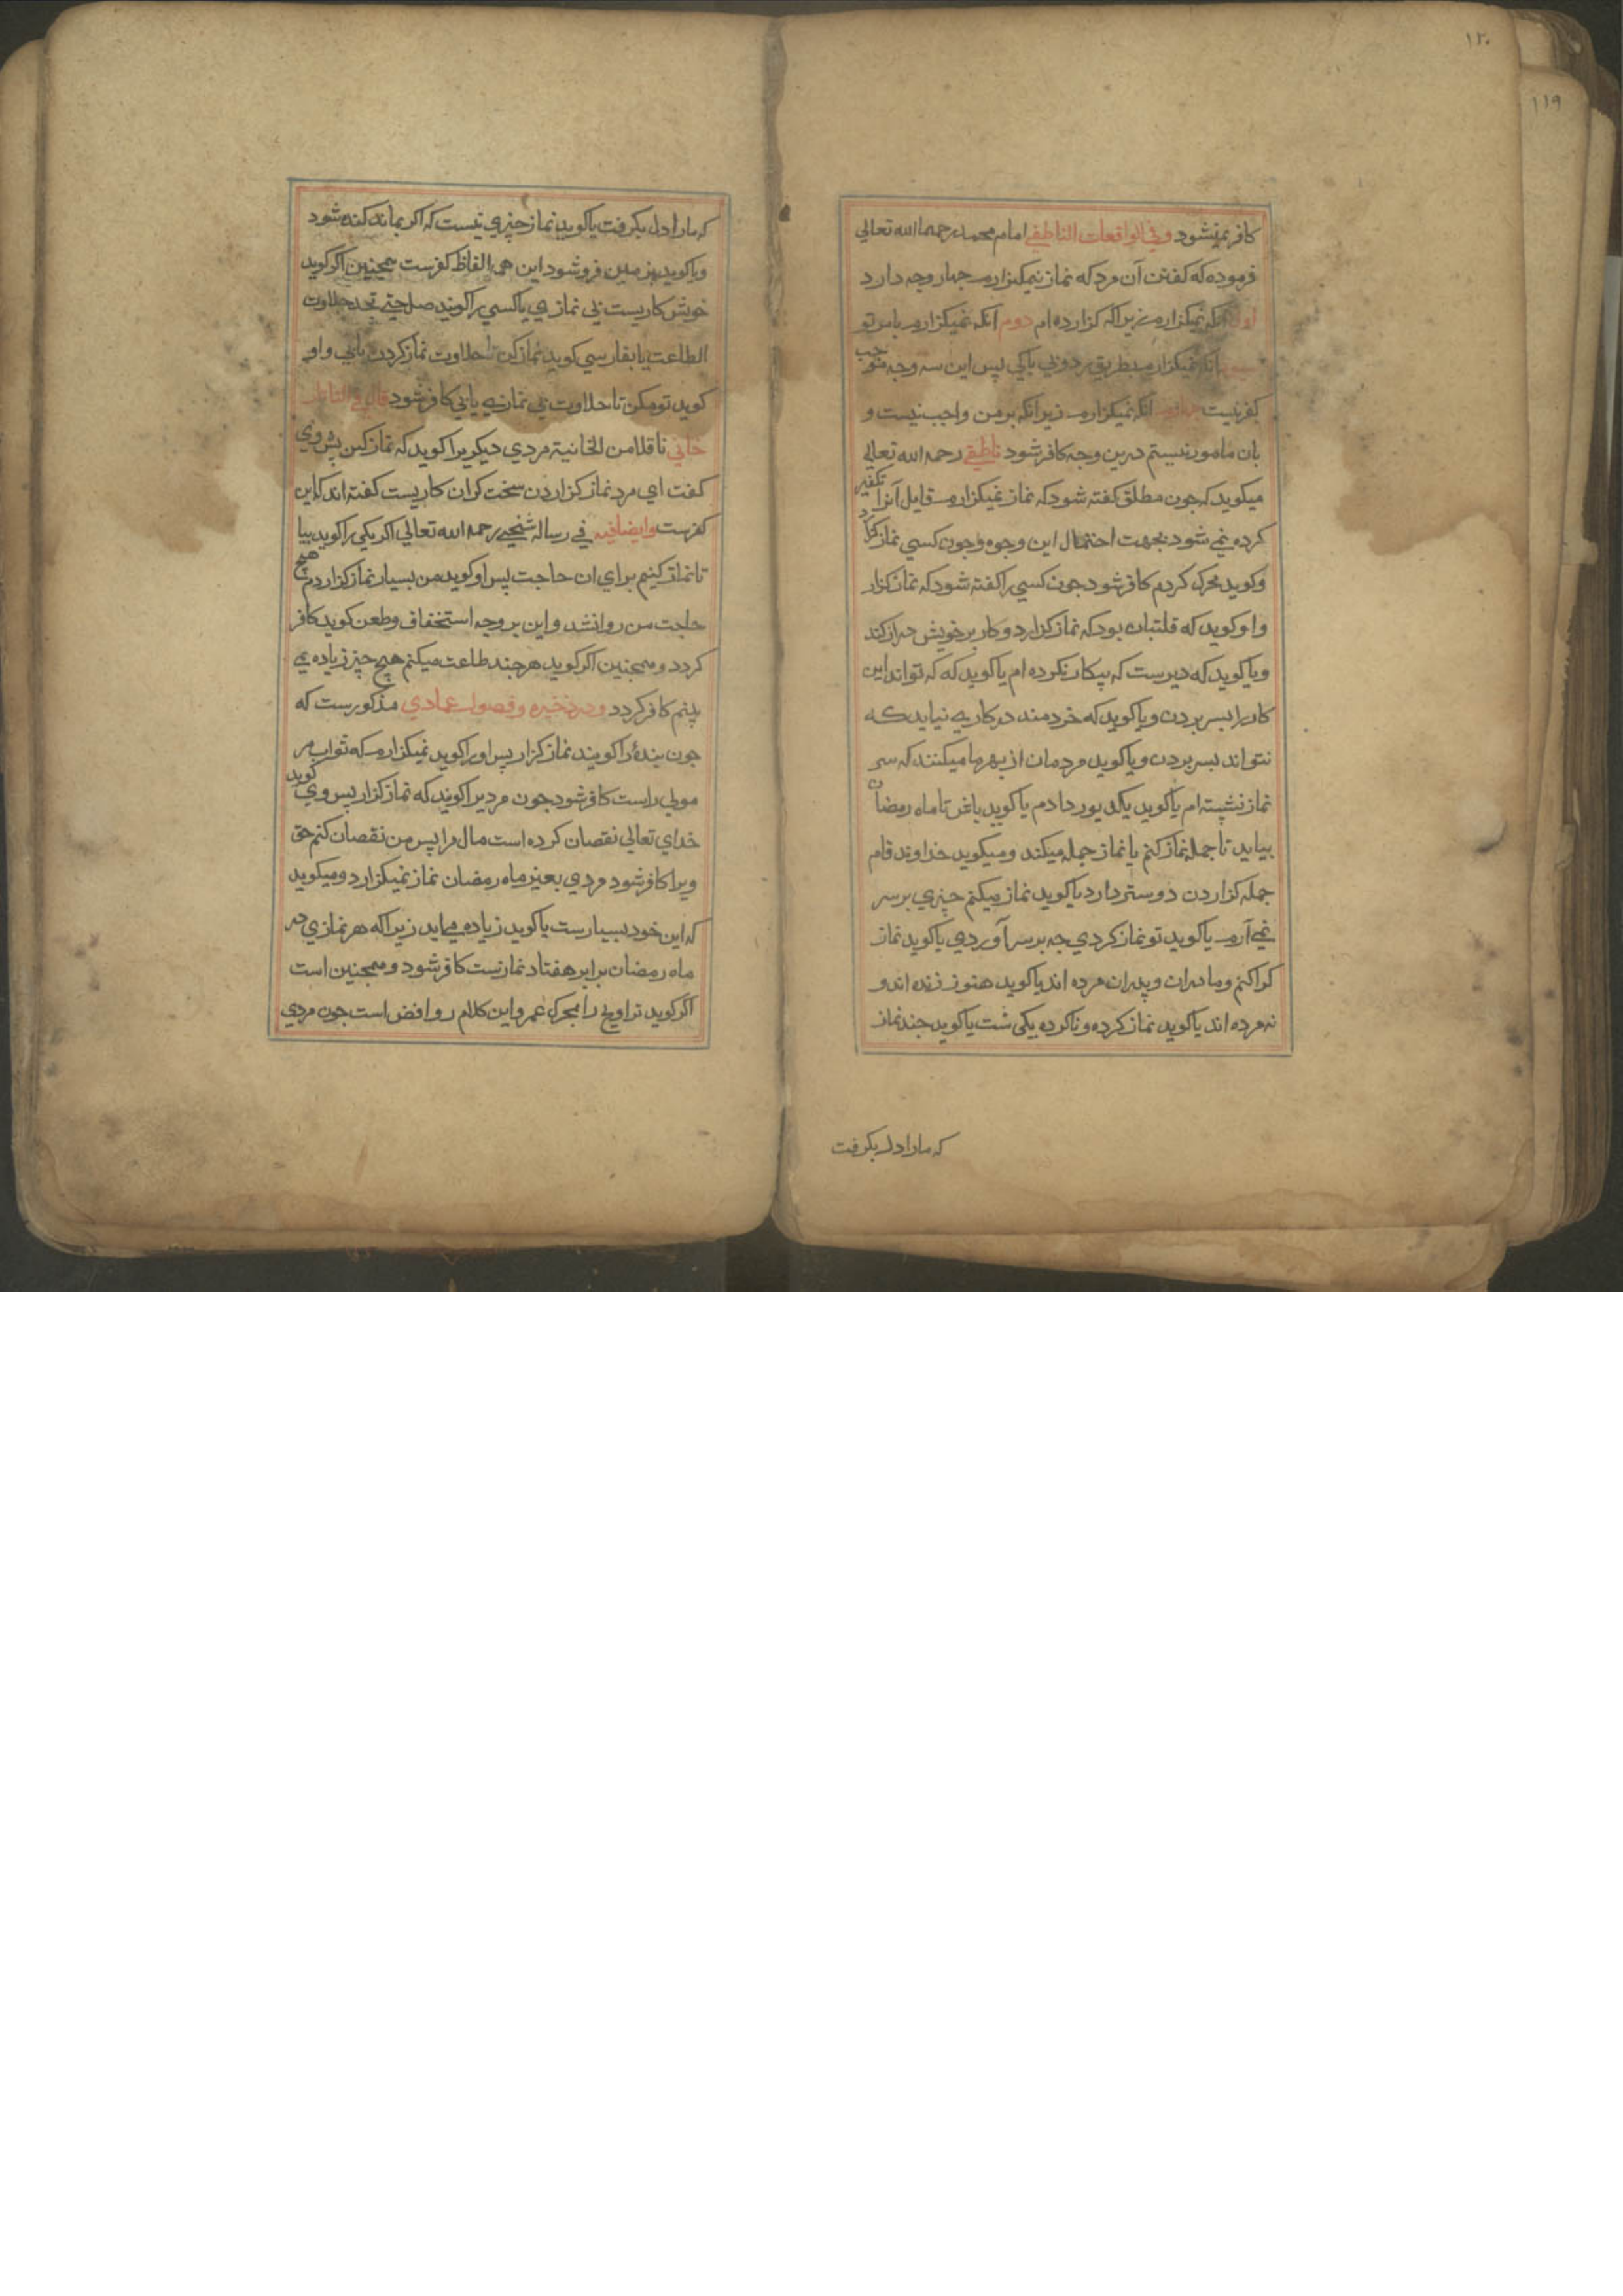 ۱۲۰
۱۱۹
کافر نمیشود وفی الواقعات الناطفی امام محمد رحمهما الله تعالی
فرموده که کفتن آن مرد که نماز نمیکزارم جهار وجه دارد
اول آنکه نمیکزارم زیراکه کزارده ام دوم آنکه نمیکزارم بامر تو
سیوم آنکه نمیکزارم بطریق بی باکی پس این سه وجه موجب
کفر نیست جهارم آنکه نمیکزارم زیرانکه بر من واجب نیست و
بان مامور نیستم درین وجه کافر شود ناطفی رحمه الله تعالی
میکوید که جون مطلق کفته شود که نماز نمیکزارم قایل آنرا تکفیر
کرده نمی شود بجهت احتمال این وجوه و جون کسی نماز کزارد
وکوید محرک کردم کافر شود جون کسی را کفته شود که نماز کزار
واو کوید که قلتبان بود که نماز کزارد و کار بر خویش دراز کند
ویا کوید که دیرست که بیکار نکرده ام یا کوید که که تواند این
کار را بسر بردن ویا کوید که خردمند در کاری نیاید که
نتواند بسر بردن ویا کوید مردمان از بهر ما میکنند که سر
نماز نشسته ام یا کوید دادم یا کویید باش تا ماه رمضان
بیاید تا جمله نماز کنم یا نماز جمله میکند ومیکوید خداوند قام
جمله کزاردن دوستر دارد یا کوید نماز میکنم چیزی بر سر
نمی آرم یا کوید تو نماز کردی جه بر سر آوردی یا کوید نماز
کرا کنم و مادران و پدران مرده اند یا کوید هنوز زنده اند و
نه مرده اند یا کوید نماز کرده و ناکرده یکی است یا کوید جند نماز
که مارا دل بکرفت
که مارا دل بکرفت یا کوید نماز چیزی نیست که اکر بماند کنده شود
ویا کوید بزمین فرو شود این همه الفاظ کفرست همجنین اکر کوید
خوش کاریست بی نمازی یا کسی را کویند صل حتی تجد حلاوت
الطاعت یا بفارسی کوید نماز کن تا حلاوت نماز کردن یابی و او
کوید تو مکن تا حلاوت بی نمازی یابی کافر شود قال فی التاتار
خانی ناقلا من الخانیة مردی دیکریرا کوید که نماز کن پس وی
کفت ای مرد نماز کزاردن سخت کران کاریست کفته اند که این
کفرست وایضا فیه فی رساله رحمه الله تعالی اکر یکی را کوید بیا
تا نماز کنیم برای ان حاجت پس او کوید من بسیار نماز کزاردم هیچ
حاجت من روا نشد و این بر وجه استخفاف وطعن کوید کافر
کردد و همجنین اکر کوید هر جند طاعت میکنم هیچ چیز زیاده نمی
بینم کافر کردد و در ذخیره و فصول عمادی مذکورست که
جون بندهٔ را کویند نماز کزار پس او را کوید نمیکزارم که ثواب مر
مولی راست کافر شود جون مردیرا کویند که نماز کزار پس وی کوید
خدای تعالی نقصان کرده است مال مرا پس من نقصان کنم حق
ویرا کافر شود مردی بغیر ماه رمضان نماز نمیکزارد و میکوید
که این خود بسیارست یا کوید زیاده می اید زیراکه هر نمازی در
ماه رمضان برابر هفتاد نمازست کافر شود و همجنین است
اکر کوید تراویح را عمر و این کلام روافض است جون مردی